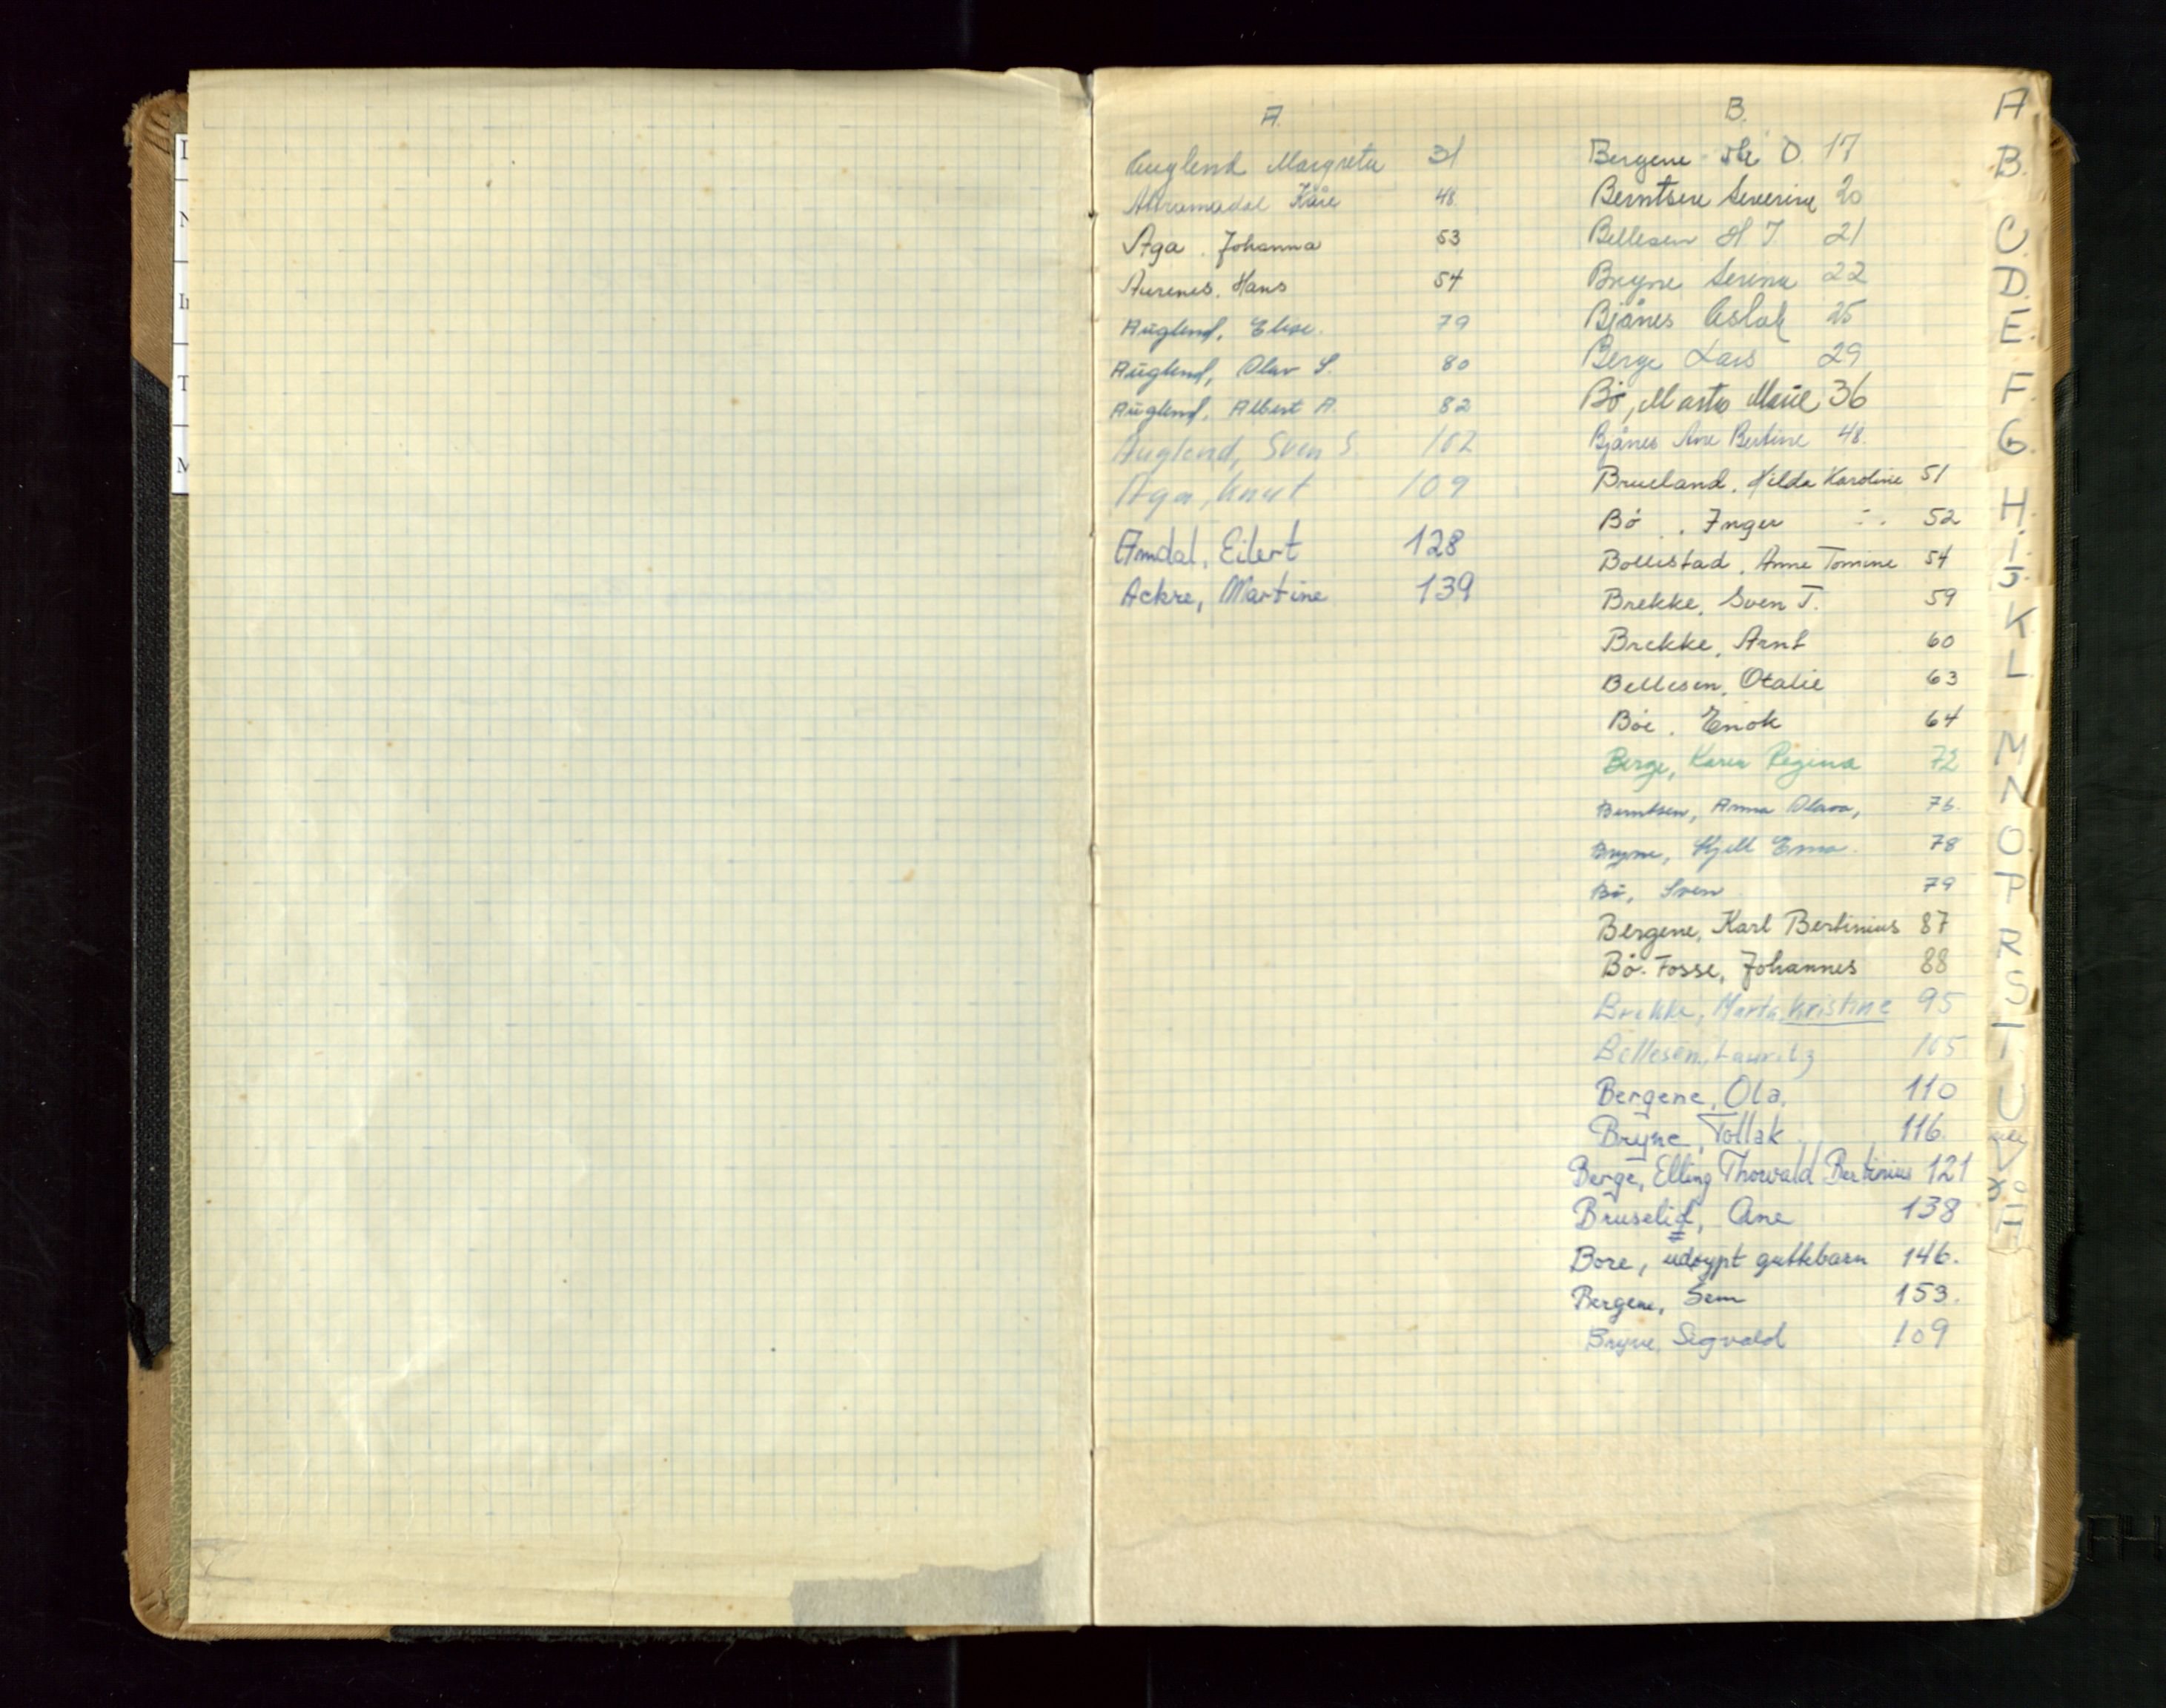 A.
Auglend Margreta 31
Kåre 48
Aga. Johanna 53
Aurenes. Hans 54
Auglend, Elise. 79
Auglend, Olav S. 80
Auglend, Albert A. 82
Auglend, Sven S. 102
Aga, Knut 109
Amdal, Eilert 128
Ackre, Martine 139
B.
Bergene O. 17
Berntsen Severine 20
Bellesen H J 21
Bryne Serina 22
Bjånes Aslak 25
Berge Lars 29
Bø, Marta Marie 36
Bjånes Ane Bertine 48.
Brueland, Hilda Karoline 51
Bø, Inger 52
Bollestad, Anne Tomine 54
Brekke, Sven T. 59
Brekke, Arnt 60
Bellesen, Otalie 63
Bøe, Enok 64
Berge, Karen Regina 72
Berntsen, Anna Olava, 76.
Bryne, Kjell Erna. 78
Bø, Sven 79
Bergene, Karl Bertinius 87
Bø-Fosse, Johannes 88
Brekke, Marta Kristine 95
Bellesen, Lauritz 105
Bergene, Ola, 110
Bryne, Tollak 116.
Berge, Elling Thorvald Bertinius 121
Bruselid, Ane 138
Bore, udøypt guttebarn 146.
Bergene, Sem 153.
Bryne, Sigvald 109
A
B.
C.
D.
E.
F.
G
H.
I.
J.
K
L
M
N
O.
P
R
S
T
U
V
Ø
Å